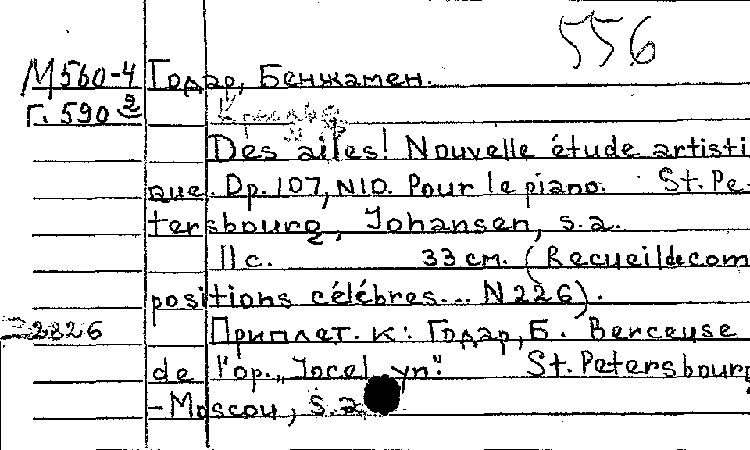 556
М560-4 Годар, Бенжамен.
Г. 590 2
Des ailes! Nouvelle étude artisti
que. Op. 107, N10. Pour le piano. St. Pe-
tersbourg, Johansen, s.a.
11 с. 33 см. (Recueil de com
positions célébres... N 226).
2826 Приплет. к: Годар, Б. Berceuse
de l'op. „Jocelyn". St. Petersbourg
-Moscou, s.a